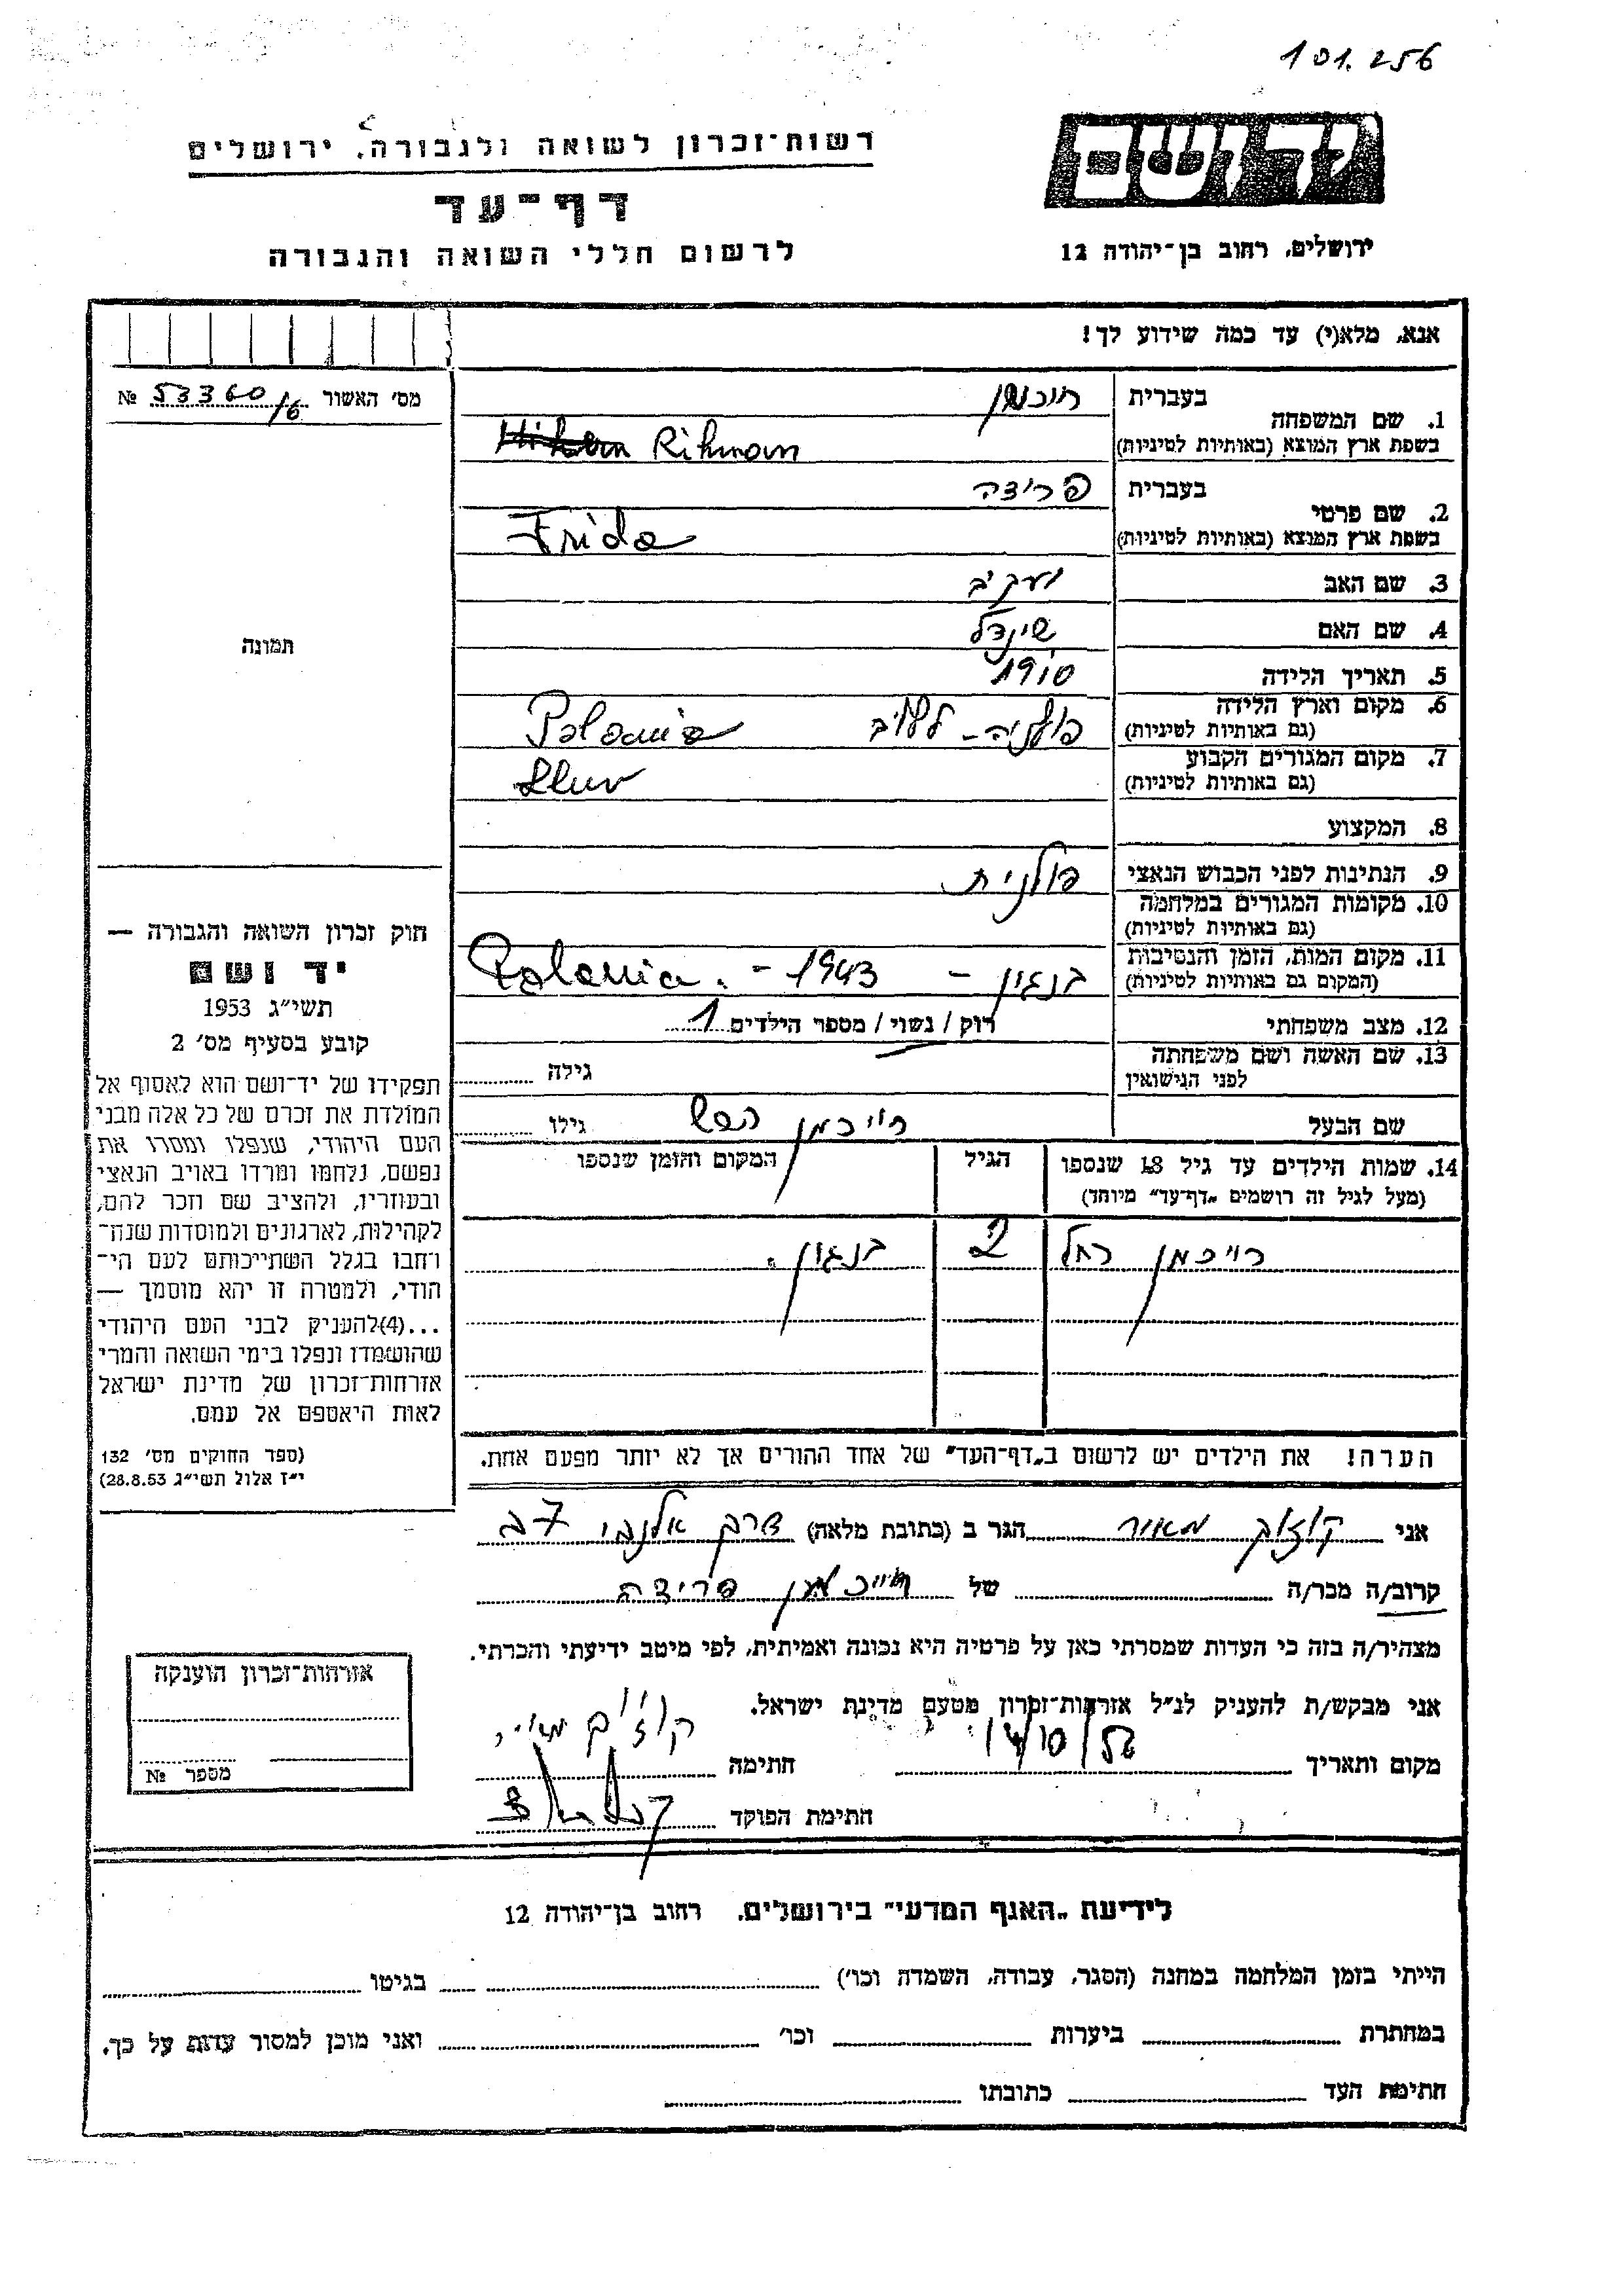 101.256
יד ושם
רשות־זכרון לשואה ולגבורה, ירושלים
דף־עד
לרשום חללי השואה והגבורה
ירושלים, רחוב בן־יהודה 12
אנא, מלא(י) עד כמה שידוע לך!
מס׳ האשור № 53360/6
1. שם המשפחה
בעברית
בשפת ארץ המוצא (באותיות לטיניות) Rihman
2. שם פרטי
בעברית פרידה
בשפת ארץ המוצא (באותיות לטיניות) Frida
3. שם האב יעקב
4. שם האם שינדל
5. תאריך הלידה 1910
6. מקום וארץ הלידה
(גם באותיות לטיניות) פולניה - Polania
7. מקום המגורים הקבוע
(גם באותיות לטיניות)
8. המקצוע
9. הנתינות לפני הכבוש הנאצי פולנית
10. מקומות המגורים במלחמה
(גם באותיות לטיניות)
11. מקום המות, הזמן והנסיבות
(המקום גם באותיות לטיניות) - 1943 - Polania.
12. מצב משפחתי רוק / נשוי / מספר הילדים 1
13. שם האשה ושם משפחתה
לפני הנישואין גילה
שם הבעל רייכמן הרש גילו
14. שמות הילדים עד גיל 18 שנספו
(מעל לגיל זה רושמים „דף־עד״ מיוחד)
הגיל
המקום והזמן שנספו
רייכמן רחל 2
הערה! את הילדים יש לרשום ב„דף־העד״ של אחד ההורים אך לא יותר מפעם אחת.
תמונה
חוק זכרון השואה והגבורה —
יד ושם
תשי״ג 1953
קובע בסעיף מס׳ 2
תפקידו של יד־ושם הוא לאסוף אל
המולדת את זכרם של כל אלה מבני
העם היהודי, שנפלו ומסרו את
נפשם, נלחמו ומרדו באויב הנאצי
ובעוזריו, ולהציב שם וזכר להם,
לקהילות, לארגונים ולמוסדות שנח־
רחבו בגלל השתייכותם לעם הי־
הודי, ולמטרה זו יהא מוסמך —
...(4)להעניק לבני העם היהודי
שהושמדו ונפלו בימי השואה והמרי
אזרחות־זכרון של מדינת ישראל
לאות היאספם אל עמם.
(ספר החוקים מס׳ 132
י״ז אלול תשי״ג 28.8.53)
אני מאיר הגר ב (כתובת מלאה) דרך אלנבי 7ב
קרוב/ה מכר/ה של רייכמן פרידה
מצהיר/ה בזה כי העדות שמסרתי כאן על פרטיה היא נכונה ואמיתית, לפי מיטב ידיעתי והכרתי.
אני מבקש/ת להעניק לנ״ל אזרחות־זכרון מטעם מדינת ישראל.
מקום ותאריך חתימה
חתימת הפוקד
אזרחות־זכרון הוענקה
מספר №
לידיעת „האגף המדעי״ בירושלים. רחוב בן־יהודה 12
הייתי בזמן המלחמה במחנה (הסגר, עבודה, השמדה וכו׳) בגיטו
במחתרת ביערות וכו׳ ואני מוכן למסור עדות על כך.
חתימת העד כתובתו